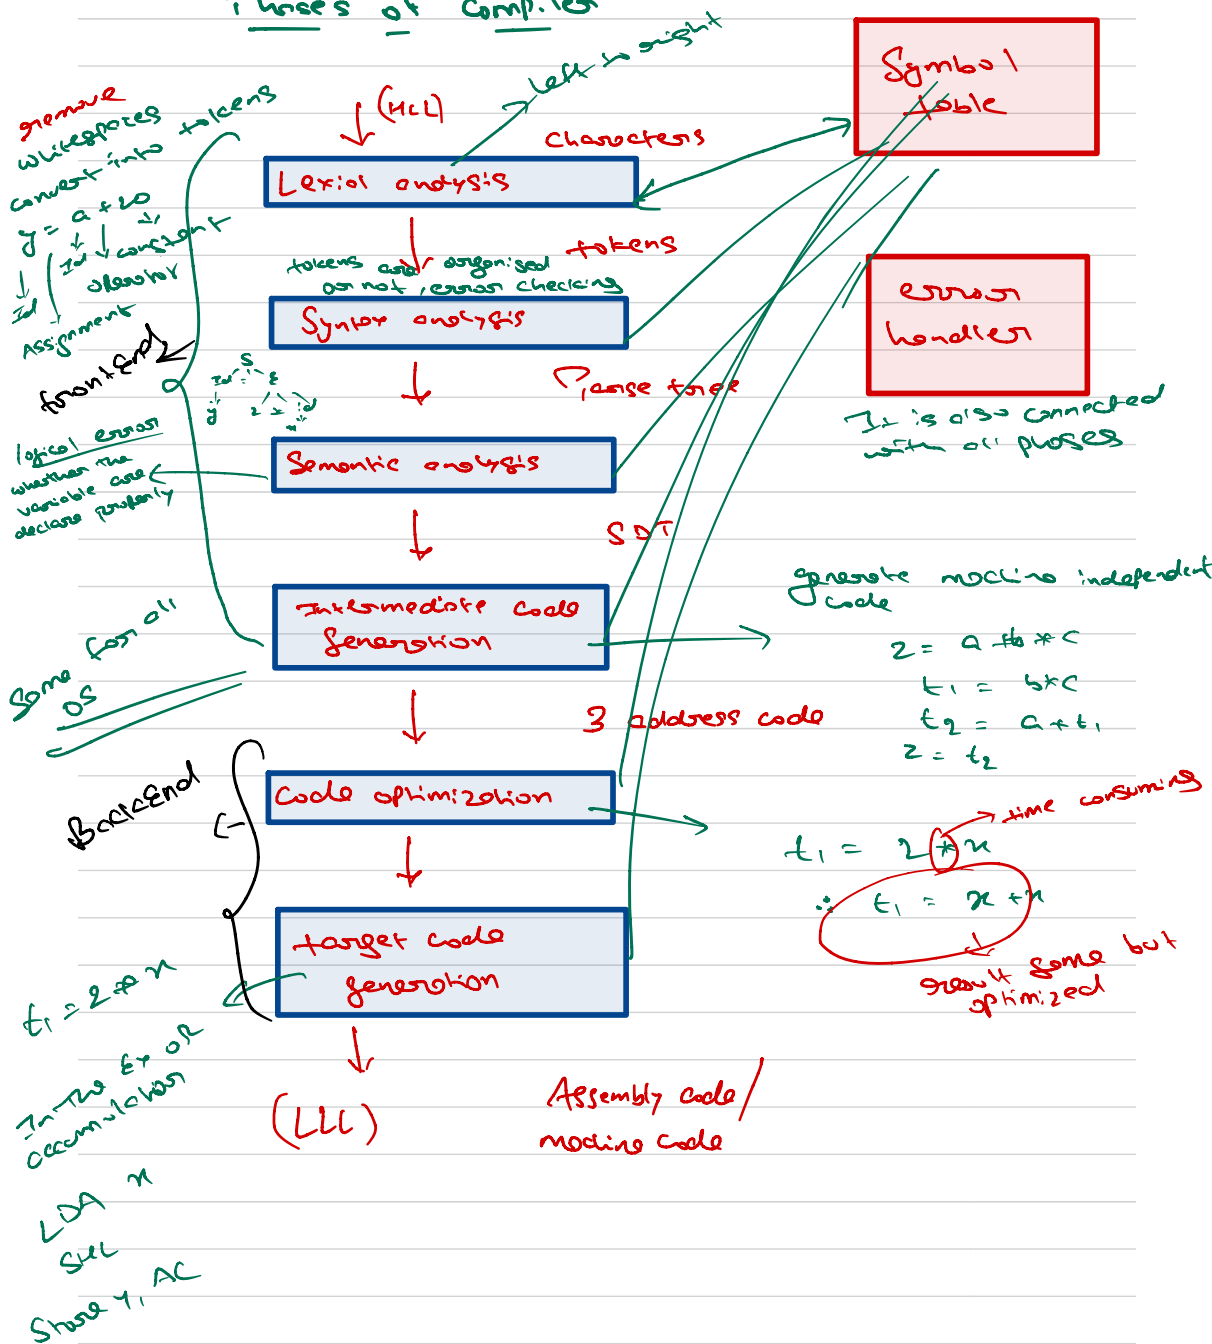 Phases of Compiler
Symbol
table
left to right
(HLL)
characters
remove
whitespaces
convert into tokens
y = a + 20
Id constant
operator
Id
Assignment
Lexial analysis
tokens
tokens are organised
or not, error checking
Syntax analysis
error
handler
It is also connected
with all phases
frontEnd
S
Id = E
y
2 * id
x
Parse tree
logical error
whether the
variable are
declare properly
Semantic analysis
SDT
Intermediate code
generation
generate machine independent
code
z = a + b * c
t1 = b*c
t2 = a + t1
z = t2
Same for all
OS
3 address code
BackEnd
Code optimization
time consuming
t1 = 2 * x
∴ t1 = x + x
result same but
optimized
target code
generation
t1 = 2 * x
In the Ex OR
accumulator
LDA x
SHL
Store Y, AC
(LLL)
Assembly code/
machine code